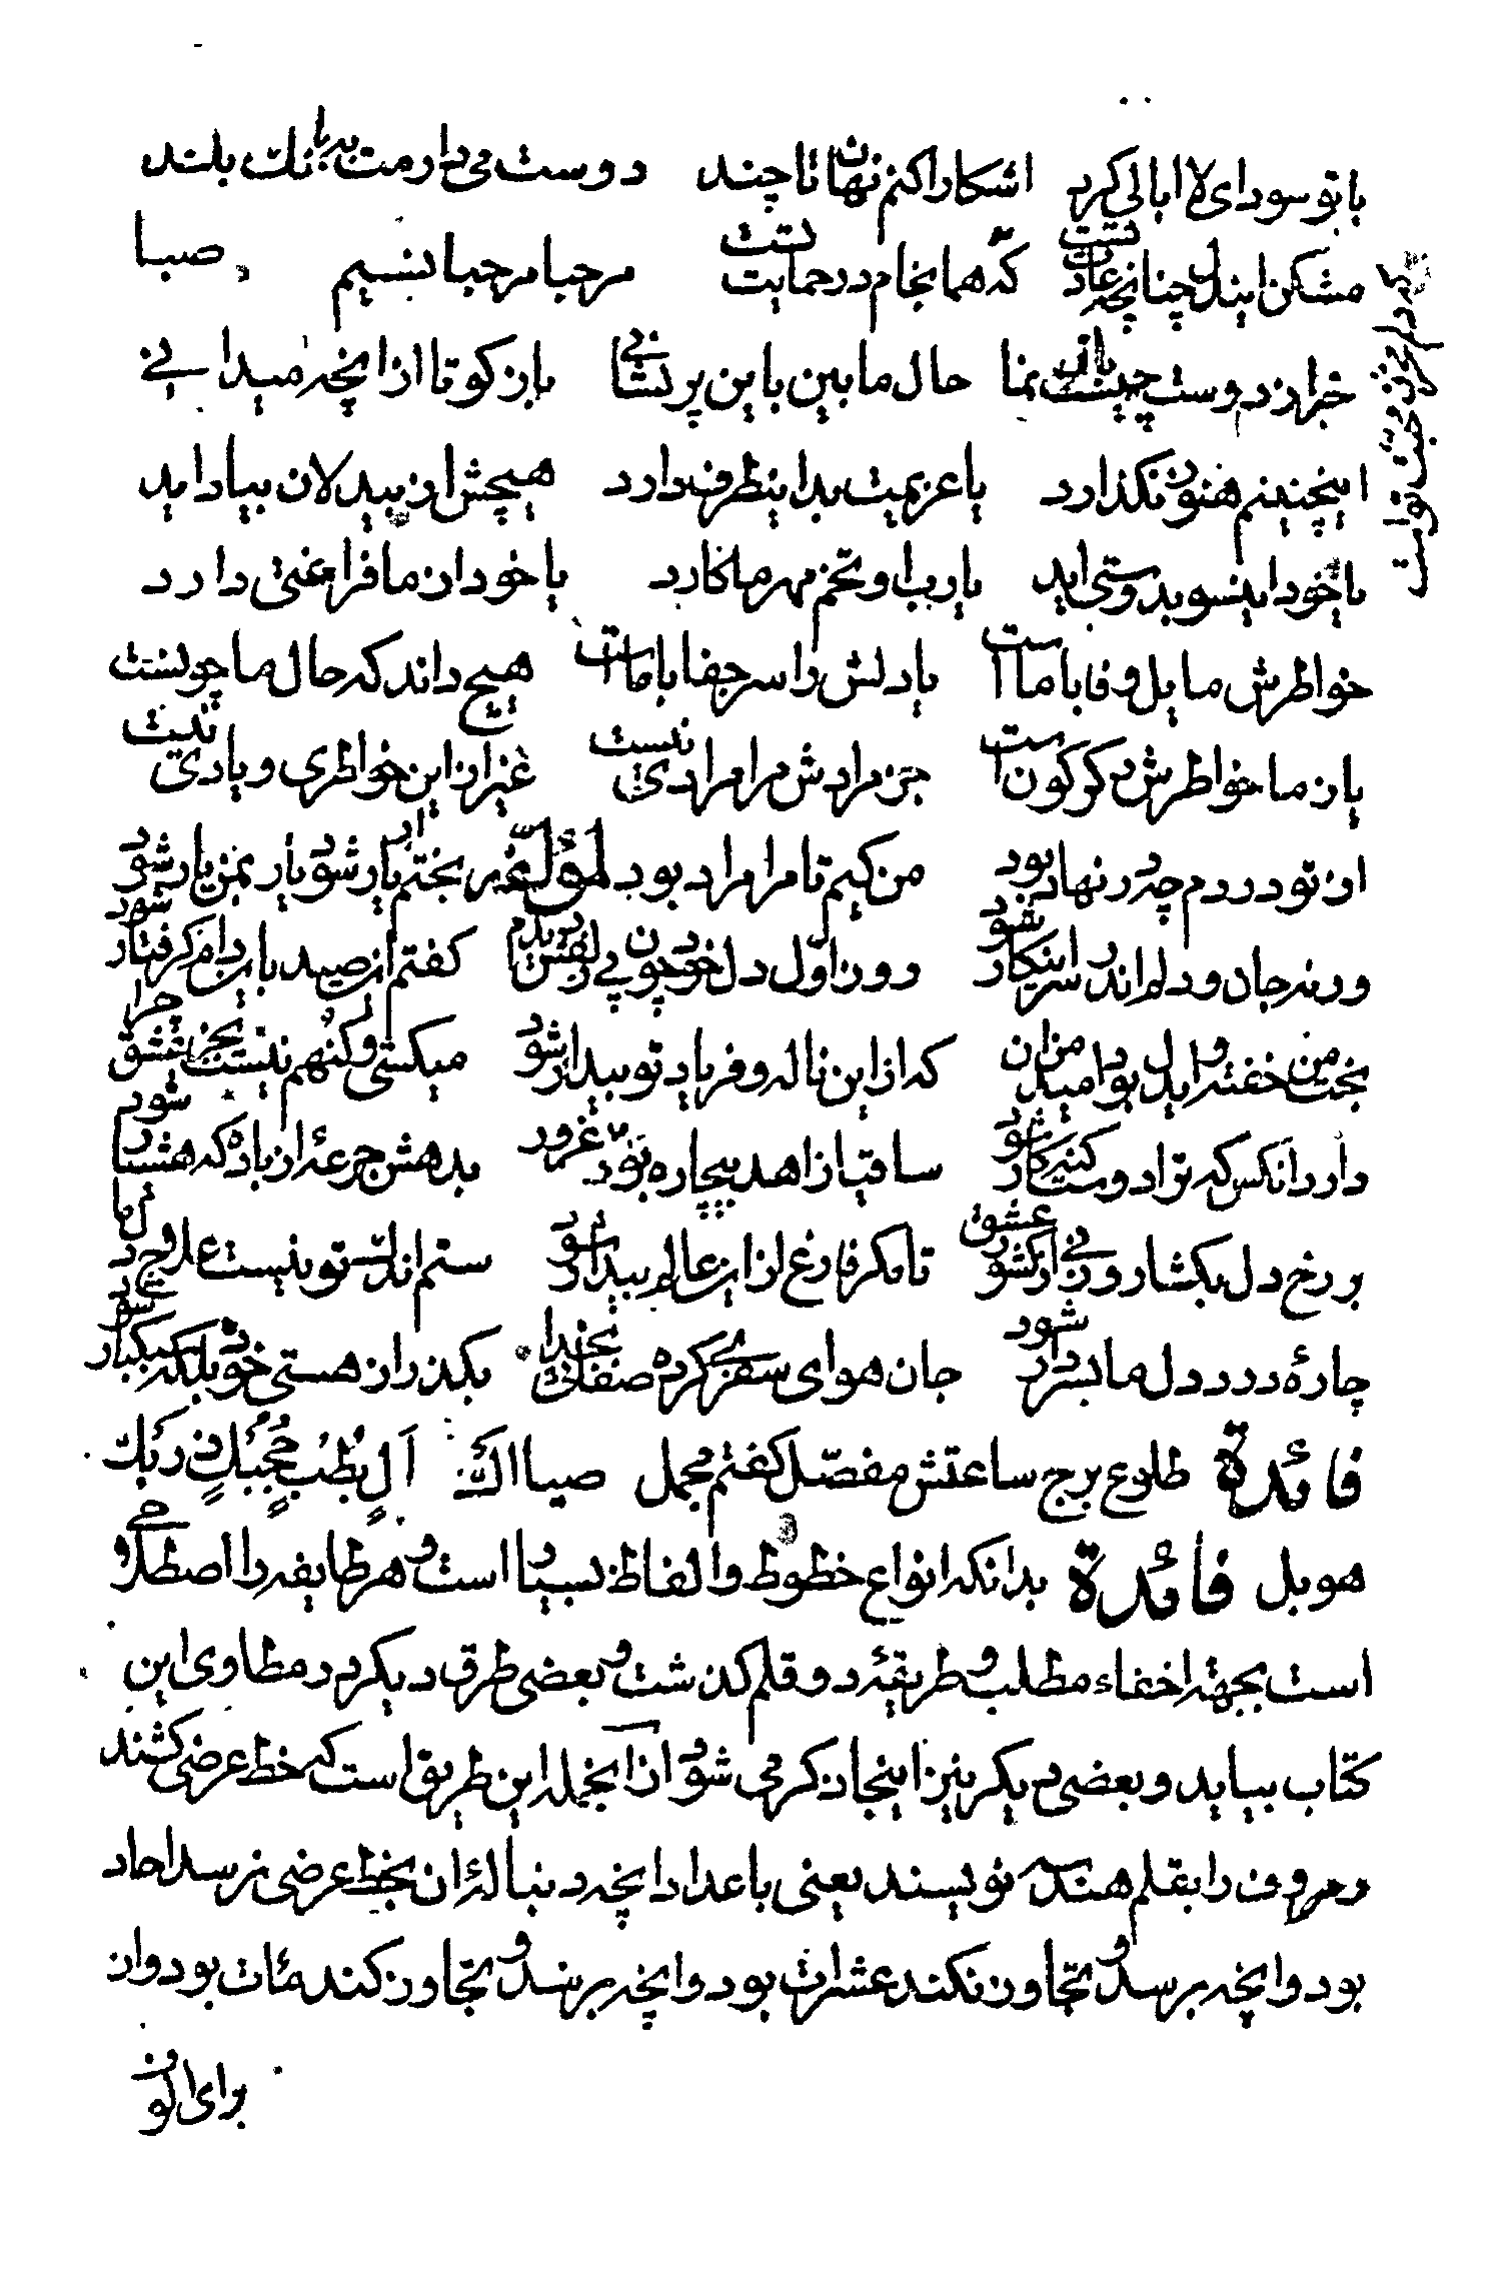 با تو سودای لا ابالی کرد اشکارا کنم نهان تا چند دوست می دارمت ببانك بلند
مشکن ایندل چنانچه عادتست که همانجام در حمایت تست مرحبا مرحبا نسیم صبا
خبر از دوست چیست بازنما حال ما بین باین پریشانی باز کو تا از انچه میدانی
اینچنینم هنوز نکذارد یا عزیمت بداینطرف دارد هیچش از بیدلان بیاد اید
یا خود اینسو بدوستی اید یا رب او تخم مهر ما کارد یا خود از ما فراغتی دارد
خواطرش مایل وفا با ماست یا دلش را سر جفا با ماست هیچ داند که حال ما چونست
یا ز ما خواطرش دکرکونست جز مرادش مرا مرادی نیست غیر از این خواطری و یادی نیست
از تو در دم چه در نهاد بود من کیم تا مرا مراد بود لمؤلفه بختم ار یار شود یار بمن یار شود
ورنه جان و دلم اندر سر اینکار شود روز اول دل خود چون پی زلفش دیدم کفتم از صید باین دام کرفتار شود
بخت من خفته و ایدل بود امید مزان که از این ناله و فریاد تو بیدار شود میکشی و کنهم نیست بجز عشق چرا
دارد انکس که ترا دوست کنه کار شود ساقیا زاهد بیچاره بود غرور بدهش جرعهٔ از باده که هشیار شود
بر رخ دل بکشا روزنی از کشور عشق تا مکر فارغ از این عالم بیدار شود ستم اندك تو نیست علاج دل ما
چارهٔ درد دل ما بسر دار شود جان هوای سفری کرده صفائی بخدا بکذر از هستی خود بلکه سبکبار شود
فائدة طلوع برج ساعتش مفصّل کفتم مجمل
هوبل فائدة بدانکه انواع خطوط و الفاظ بسیار است و هر طایفه را اصطلاحی و
است بجهته اخفاء مطلب و طریقهٔ دو قلم کذشت و بعضی طرق دیکر در مطاوی این
کتاب بیاید و بعضی دیکر نیز اینجا ذکر می شود از انجمله این طریق است که خط عرضی کشند
و حروف را بقلم هندسه نویسند یعنی باعداد انچه دنبالهٔ ان بخط عرضی نرسد احاد
بود و انچه برسد و تجاوز نکند عشرات بود و انچه برسد و تجاوز کند مئات بود و از
برای الوف
که دلم مخزن محبت تو است